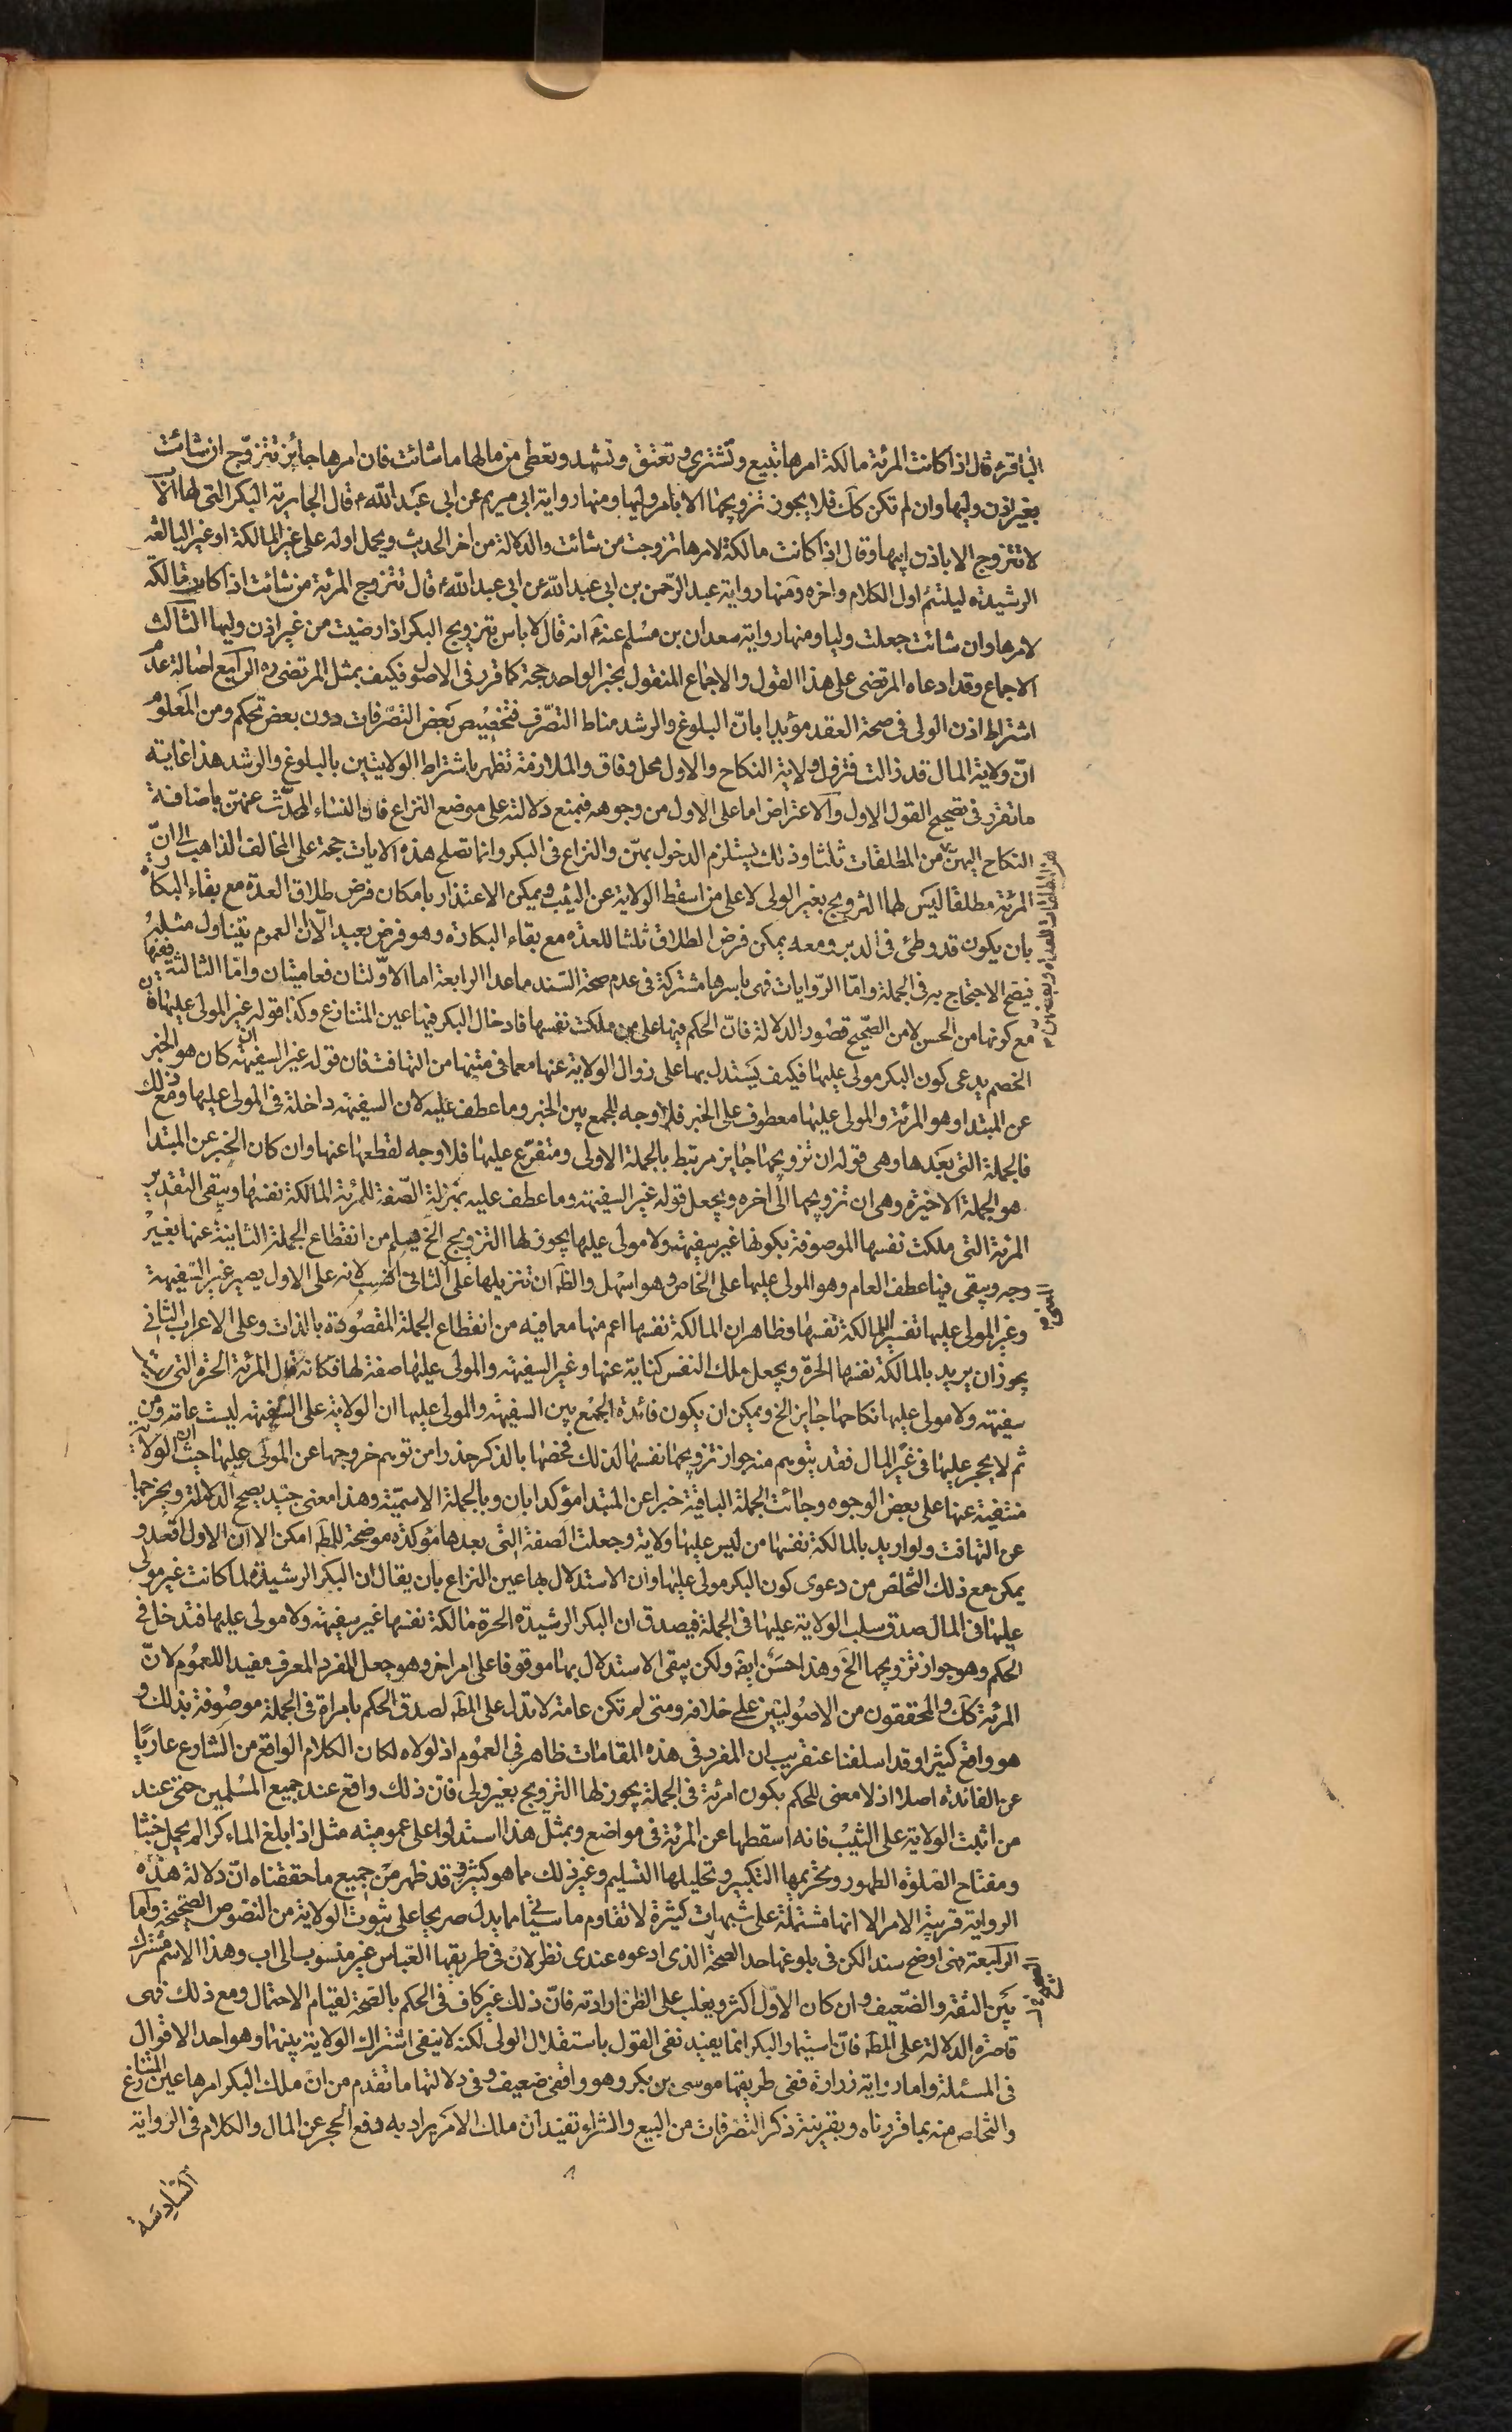 الباقر ع قال اذا كانت المرئة مالكة امرها تبيع وتشترى وتعتق وتشهد وتعطى من مالها ما شائت فان امرها جائز تتزوّج ان شائت
بغير اذن وليها وان لم تكن كك فلا يجوز تزويجها الا بامر وليها ومنها رواية ابى مريم عن ابى عبد الله ع قال الجارية البكر التى لها الاب
لا تتزوج الا باذن ابيها وقال اذا كانت مالكة لامرها تزوجت من شائت والدلالة من اخر الحديث ويحمل اوله على غير المالكة او غير البالغة
الرشيدة ليلتئم اول الكلام واخره ومنها رواية عبد الرّحمن بن ابى عبد الله عن ابى عبد الله ع قال تتزوج المرئة من شائت اذا كانت مالكة
لامرها وان شائت جعلت وليا ومنها رواية سعدان بن مسلم عنه ع انه قال لا باس بتزويج البكر اذا رضيت من غير اذن وليها الثالث
الاجماع وقد ادعاه المرتضى على هذا القول والاجماع المنقول بخبر الواحد حجة كما قرر فى الاصول فكيف بمثل المرتضى ره الرابع اصالة عدم
اشتراط اذن الولى فى صحة العقد مؤيدا بانّ البلوغ والرشد مناط التصّرف فتخصيص بعض التصّرفات دون بعض تحكم ومن المعلوم
انّ ولاية المال قد زالت فتزول ولاية النكاح والاول محل وفاق والملازمة تظهر باشتراط الولايتين بالبلوغ والرشد هذا غاية
ما تقرر فى تصحيح القول الاول والاعتراض اما على الاول من وجوهه فبمنع دلالته على موضع النزاع فان النساء المحدّث عنهنّ باضافة
النكاح اليهنّ من المطلقات ثلثا وذلك يستلزم الدخول بهنّ والنزاع فى البكر وانما تصلح هذه الايات حجة على المخالف الذاهب الى انّ
المرئة مطلقا ليس لها التزويج بغير الولى لا على من اسقط الولاية عن الثيب ويمكن الاعتذار بامكان فرض طلاق العدّة مع بقاء البكارة
بان يكون قد وطئ فى الدبر ومعه يمكن فرض الطلاق ثلثا للعدة مع بقاء البكارة وهو فرض بعيد الّا ان العموم يتناول مثله
فيصح الاحتجاج به فى الجملة وامّا الرّوايات فهى باسرها مشتركة فى عدم صحة السّند ما عدا الرابعة اما الاوّلتان فعاميتان وامّا الثالثة ففيها
مع كونها من الحسن لا من الصّحيح قصور الدلالة فانّ الحكم فيها على من ملكت نفسها فادخال البكر فيها عين المتنازع وكذا قوله غير المولى عليها فان
الخصم يدعى كون البكر مولى عليها فكيف يستدل بها على زوال الولاية عنها مع ما فى متنها من التهافت فان قوله غير السفيهة ان كان هو الخبر
عن المبتدا وهو المرئة والمولى عليها معطوف على الخبر فلا وجه للجمع بين الخبر وما عطف عليه لان السفيهة داخلة فى المولى عليها ومع ذلك
فالجملة التى بعدها وهى قوله ان تزويجها جايز مرتبط بالجملة الاولى ومتفرّع عليها فلا وجه لقطعها عنها وان كان الخبر عن المبتدا
هو الجملة الاخيرة وهى ان تزويجها الى اخره ويجعل قوله غير السفيهة وما عطف عليه بمنزلة الصّفة للمرئة المالكة نفسها ويبقى التقدير
المرئة التى ملكت نفسها الموصوفة بكونها غير سفيهة ولا مولى عليها يجوز لها التزويج الخ فيسلم من انقطاع الجملة الثانية عنها بغير
وجه ويبقى فيها عطف العام وهو المولى عليها على الخاص وهو اسهل والظ ان تنزيلها على الثانى انسب لانه على الاول يصير غير السّفيهة
وغير المولى عليها تفسيرا للمالكة نفسها وظاهر ان المالكة نفسها اعم منها مع ما فيه من انقطاع الجملة المقصودة بالذات وعلى الاعراب الثانى
يجوز ان يريد بالمالكة نفسها الحرّة ويجعل ملك النفس كناية عنها وغير السفيهة والمولى عليها صفة لها فكانه قال المرئة الحرة التى ليست
سفيهة ولا مولى عليها نكاحها جايز الخ ويمكن ان يكون فائدة الجمع بين السفيهة والمولى عليها ان الولاية على السّفيهة ليست عامة ومن
ثم لا يحجر عليها فى غير المال فقد يتوهم منه جواز تزويجها نفسها لذلك فخصّها بالذكر حذرا من توهم خروجها عن المولى عليها حيث ان الولاية
منتفية عنها على بعض الوجوه وجائت الجملة الباقية خبرا عن المبتدا مؤكدا بان وبالجملة الاسميّة وهذا معنى جيّد يصحح الدلالة ويخرجها
عن التهافت ولو اريد بالمالكة نفسها من ليس عليها ولاية وجعلت الصفة التى بعدها مؤكدة موضحة للمط امكن الا ان الاول اقعد و
يمكن مع ذلك التخلص من دعوى كون البكر مولى عليها وان الاستدلال بها عين النزاع بان يقال ان البكر الرشيدة لما كانت غير مولى
عليها فى المال صدق سلب الولاية عليها فى الجملة فيصدق ان البكر الرشيدة الحرة مالكة نفسها غير سفيهة ولا مولى عليها فتدخل فى
الحكم وهو جواز تزويجها الخ وهذا حسن ايضا ولكن يبقى الاستدلال بها موقوفا على امر اخر وهو جعل المفرد المعرف مفيدا للعموم لانّ
المرئة كك والمحققون من الاصوليين على خلافه ومتى لم تكن عامة لا تدل على المط لصدق الحكم بامراة فى الجملة موصوفة بذلك و
هو واقع كثيرا وقد اسلفنا عنقريب ان المفرد فى هذه المقامات ظاهر فى العموم اذ لولاه لكان الكلام الواقع من الشارع عاريا
عن الفائدة اصلا اذ لا معنى للحكم بكون امرئة فى الجملة يجوز لها التزويج بغير ولى فانّ ذلك واقع عند جميع المسلمين حتى عند
من اثبت الولاية على الثيب فانه اسقطها عن المرئة فى مواضع وبمثل هذا استدلوا على عموميته مثل اذا بلغ الماء كرا لم يحمل خبثا
ومفتاح الصلوة الطهور وتحريمها التكبير وتحليلها التسليم وغير ذلك مما هو كثير وقد ظهر من جميع ما حققناه انّ دلالة هذه
الرواية قريبة الامر الا انها مشتملة على شبهات كثيرة لا تقاوم ما سياتى مما يدل صريحا على ثبوت الولاية من النصوص الصحيحة واما
الرابعة فهى اوضح سندا لكن فى بلوغها حد الصحة الذى ادعوه عندى نظر لان فى طريقها العباس غير منسوب الى اب وهذا الاسم مشترك
بين الثقة والضّعيف وان كان الاوّل اكثر ويغلب على الظن ارادته فانّ ذلك غير كاف فى الحكم بالصحة لقيام الاحتمال ومع ذلك فهى
قاصرة الدلالة على المط فانّ استيمار البكر انما يفيد نفى القول باستقلال الولى لكنه لا ينفى اشتراك الولاية بينهما وهو احد الاقوال
فى المسئلة واما رواية زرارة ففى طريقها موسى بن بكر وهو واقفى ضعيف وفى دلالتها ما تقدم من ان ملك البكر امرها عين المتنازع
والتخلص منه بما قررناه وبقرينة ذكر التصّرفات من البيع والشراء تفيد ان ملك الامر يراد به رفع الحجر عن المال والكلام فى الرواية
السّادسة